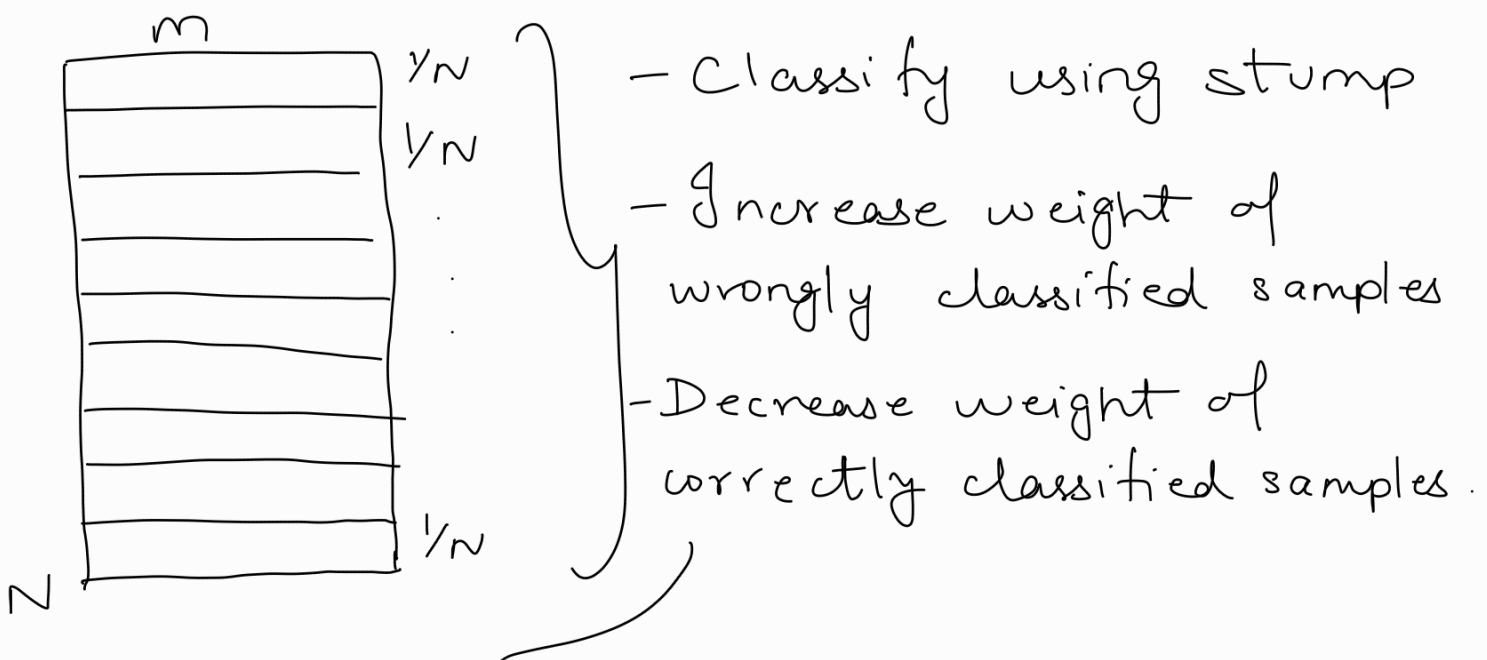 m
1/N
1/N
.
.
.
1/N
N
- Classify using stump
- Increase weight of
wrongly classified samples
- Decrease weight of
correctly classified samples.